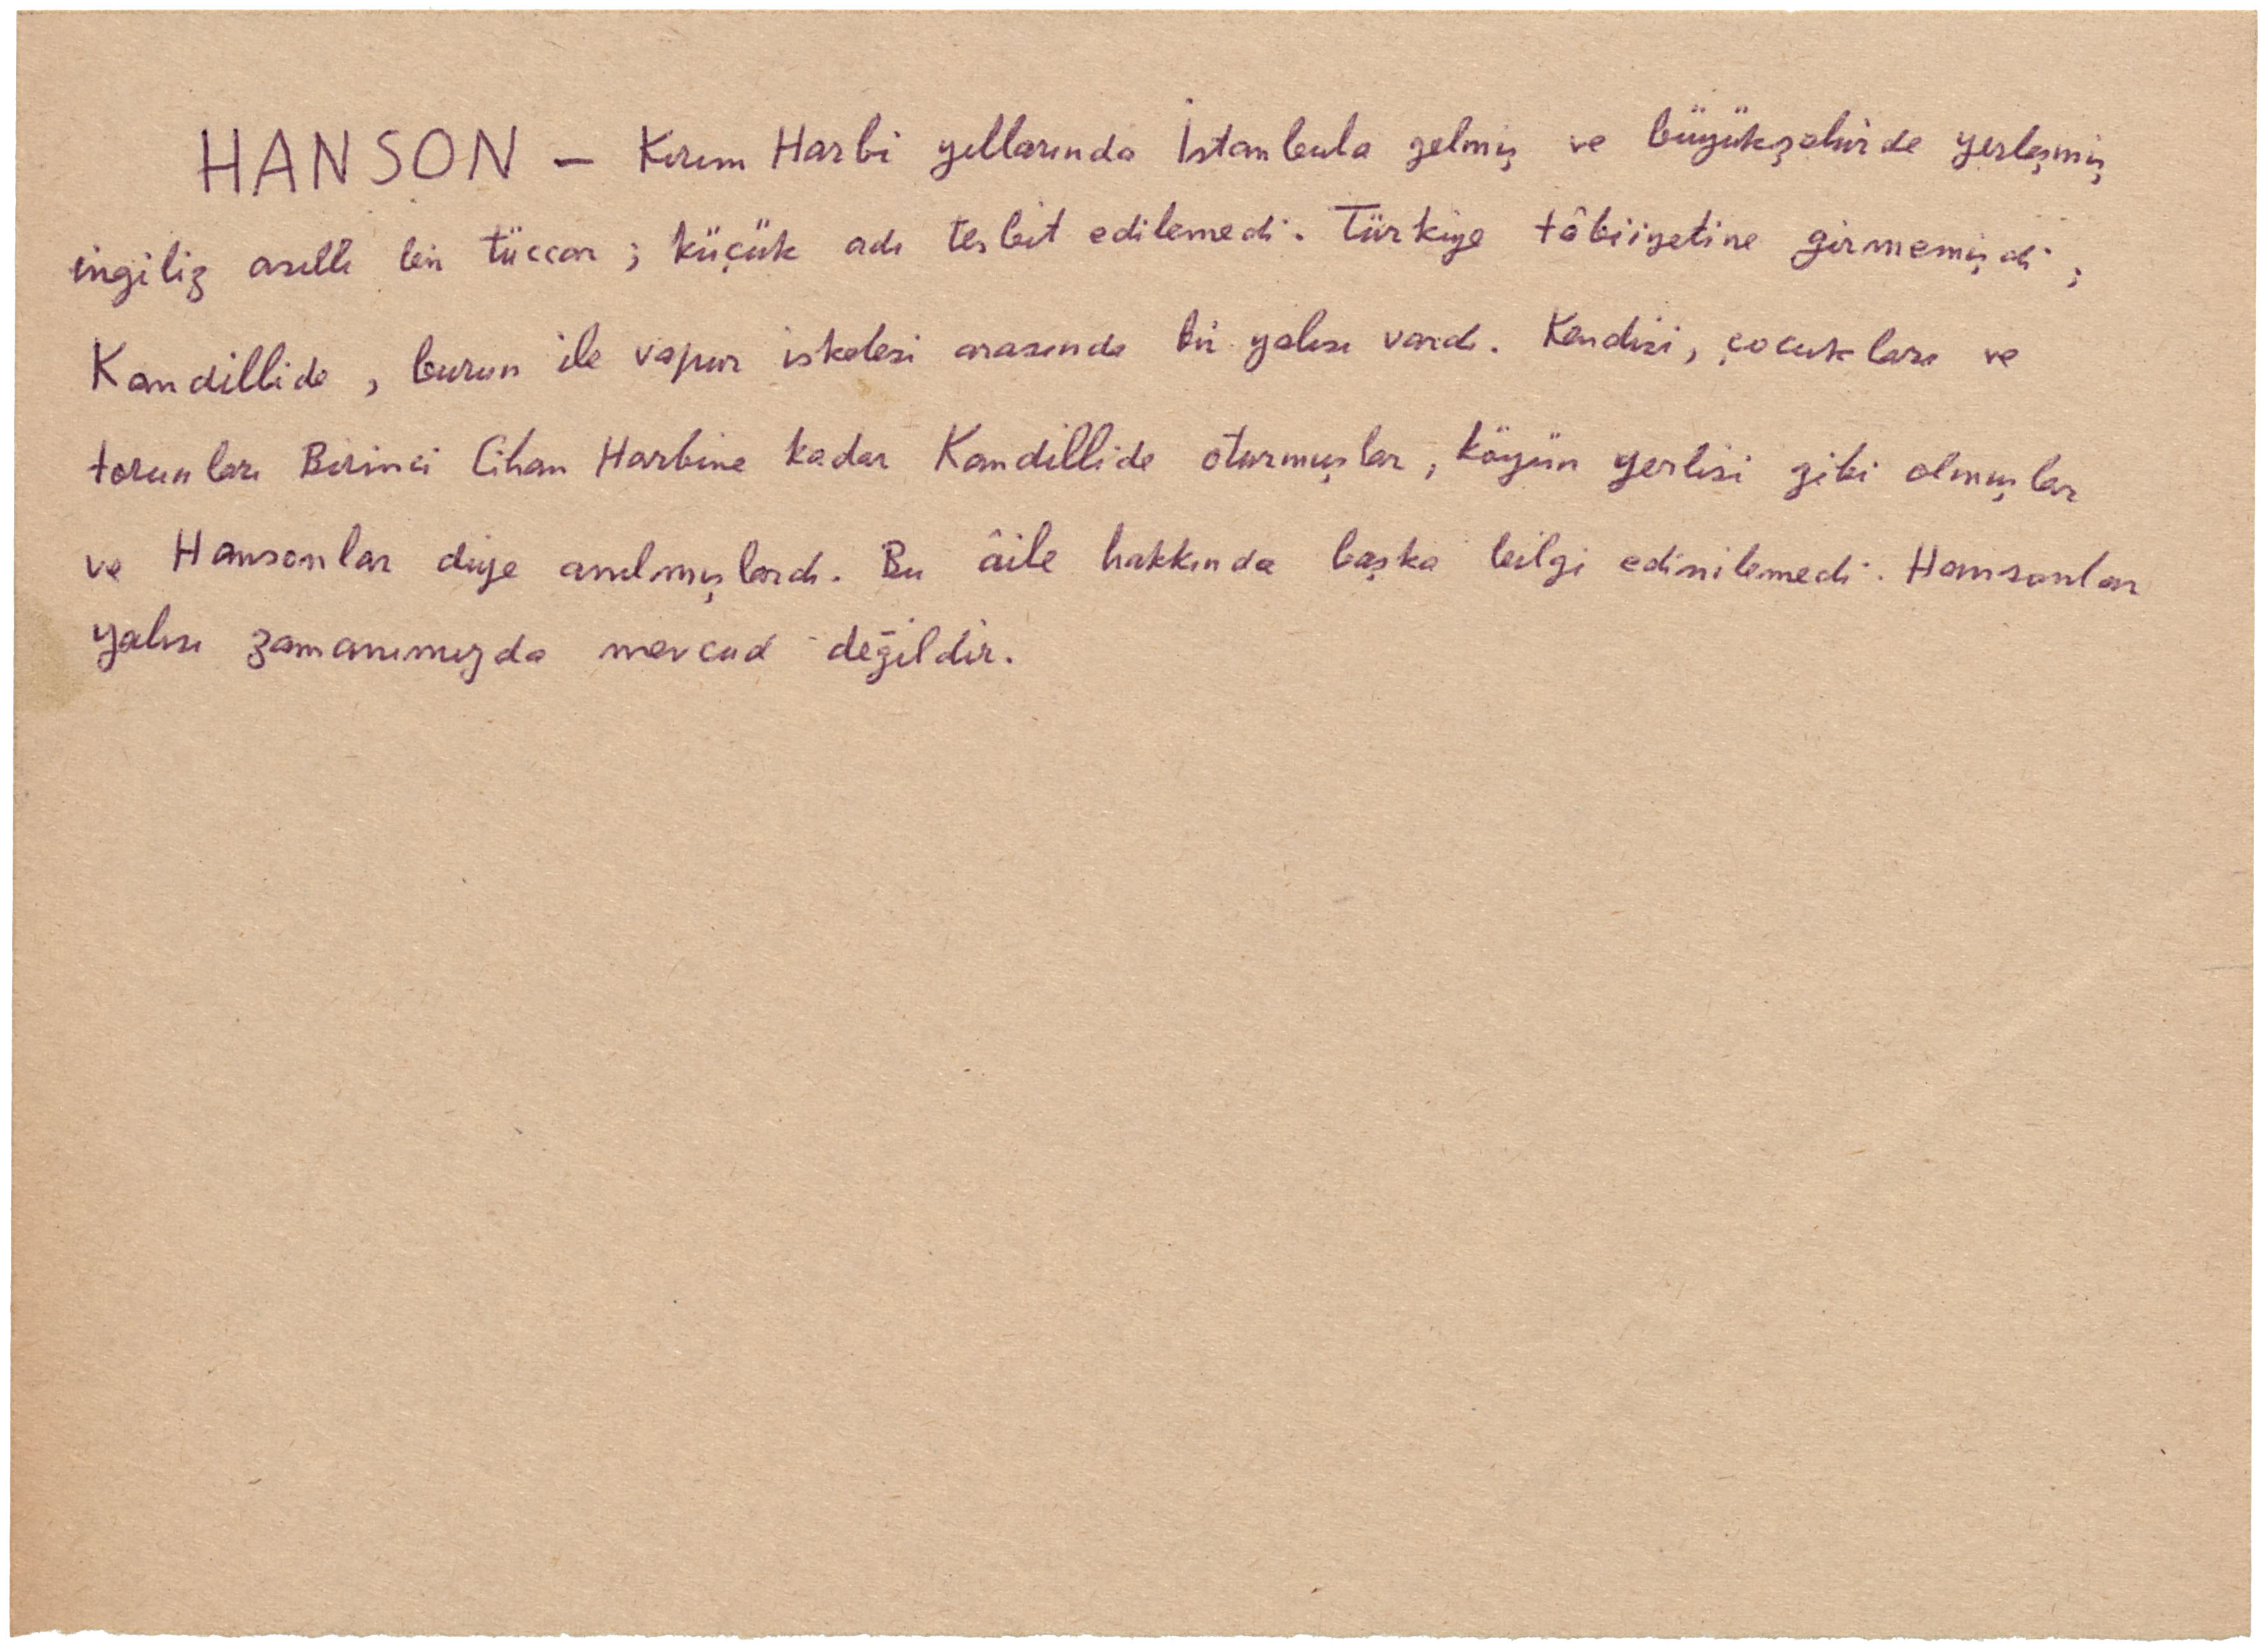 HANSON – Kırım Harbi yıllarında İstanbula gelmiş ve büyükşehirde yerleşmiş
ingiliz asıllı bir tüccar ; küçük adı tesbit edilemedi. Türkiye tâbiiyetine girmemişdi ;
Kandillide , burun ile vapur iskelesi arasında bir yalısı vardı. Kendisi, çocukları ve
torunları Birinci Cihan Harbine kadar Kandillide oturmuşlar, köyün yerlisi gibi olmuşlar
ve Hansonlar diye anılmışlardı. Bu âile hakkında başka bilgi edinilemedi. Hansonlar
yalısı zamanımızda mevcud değildir.